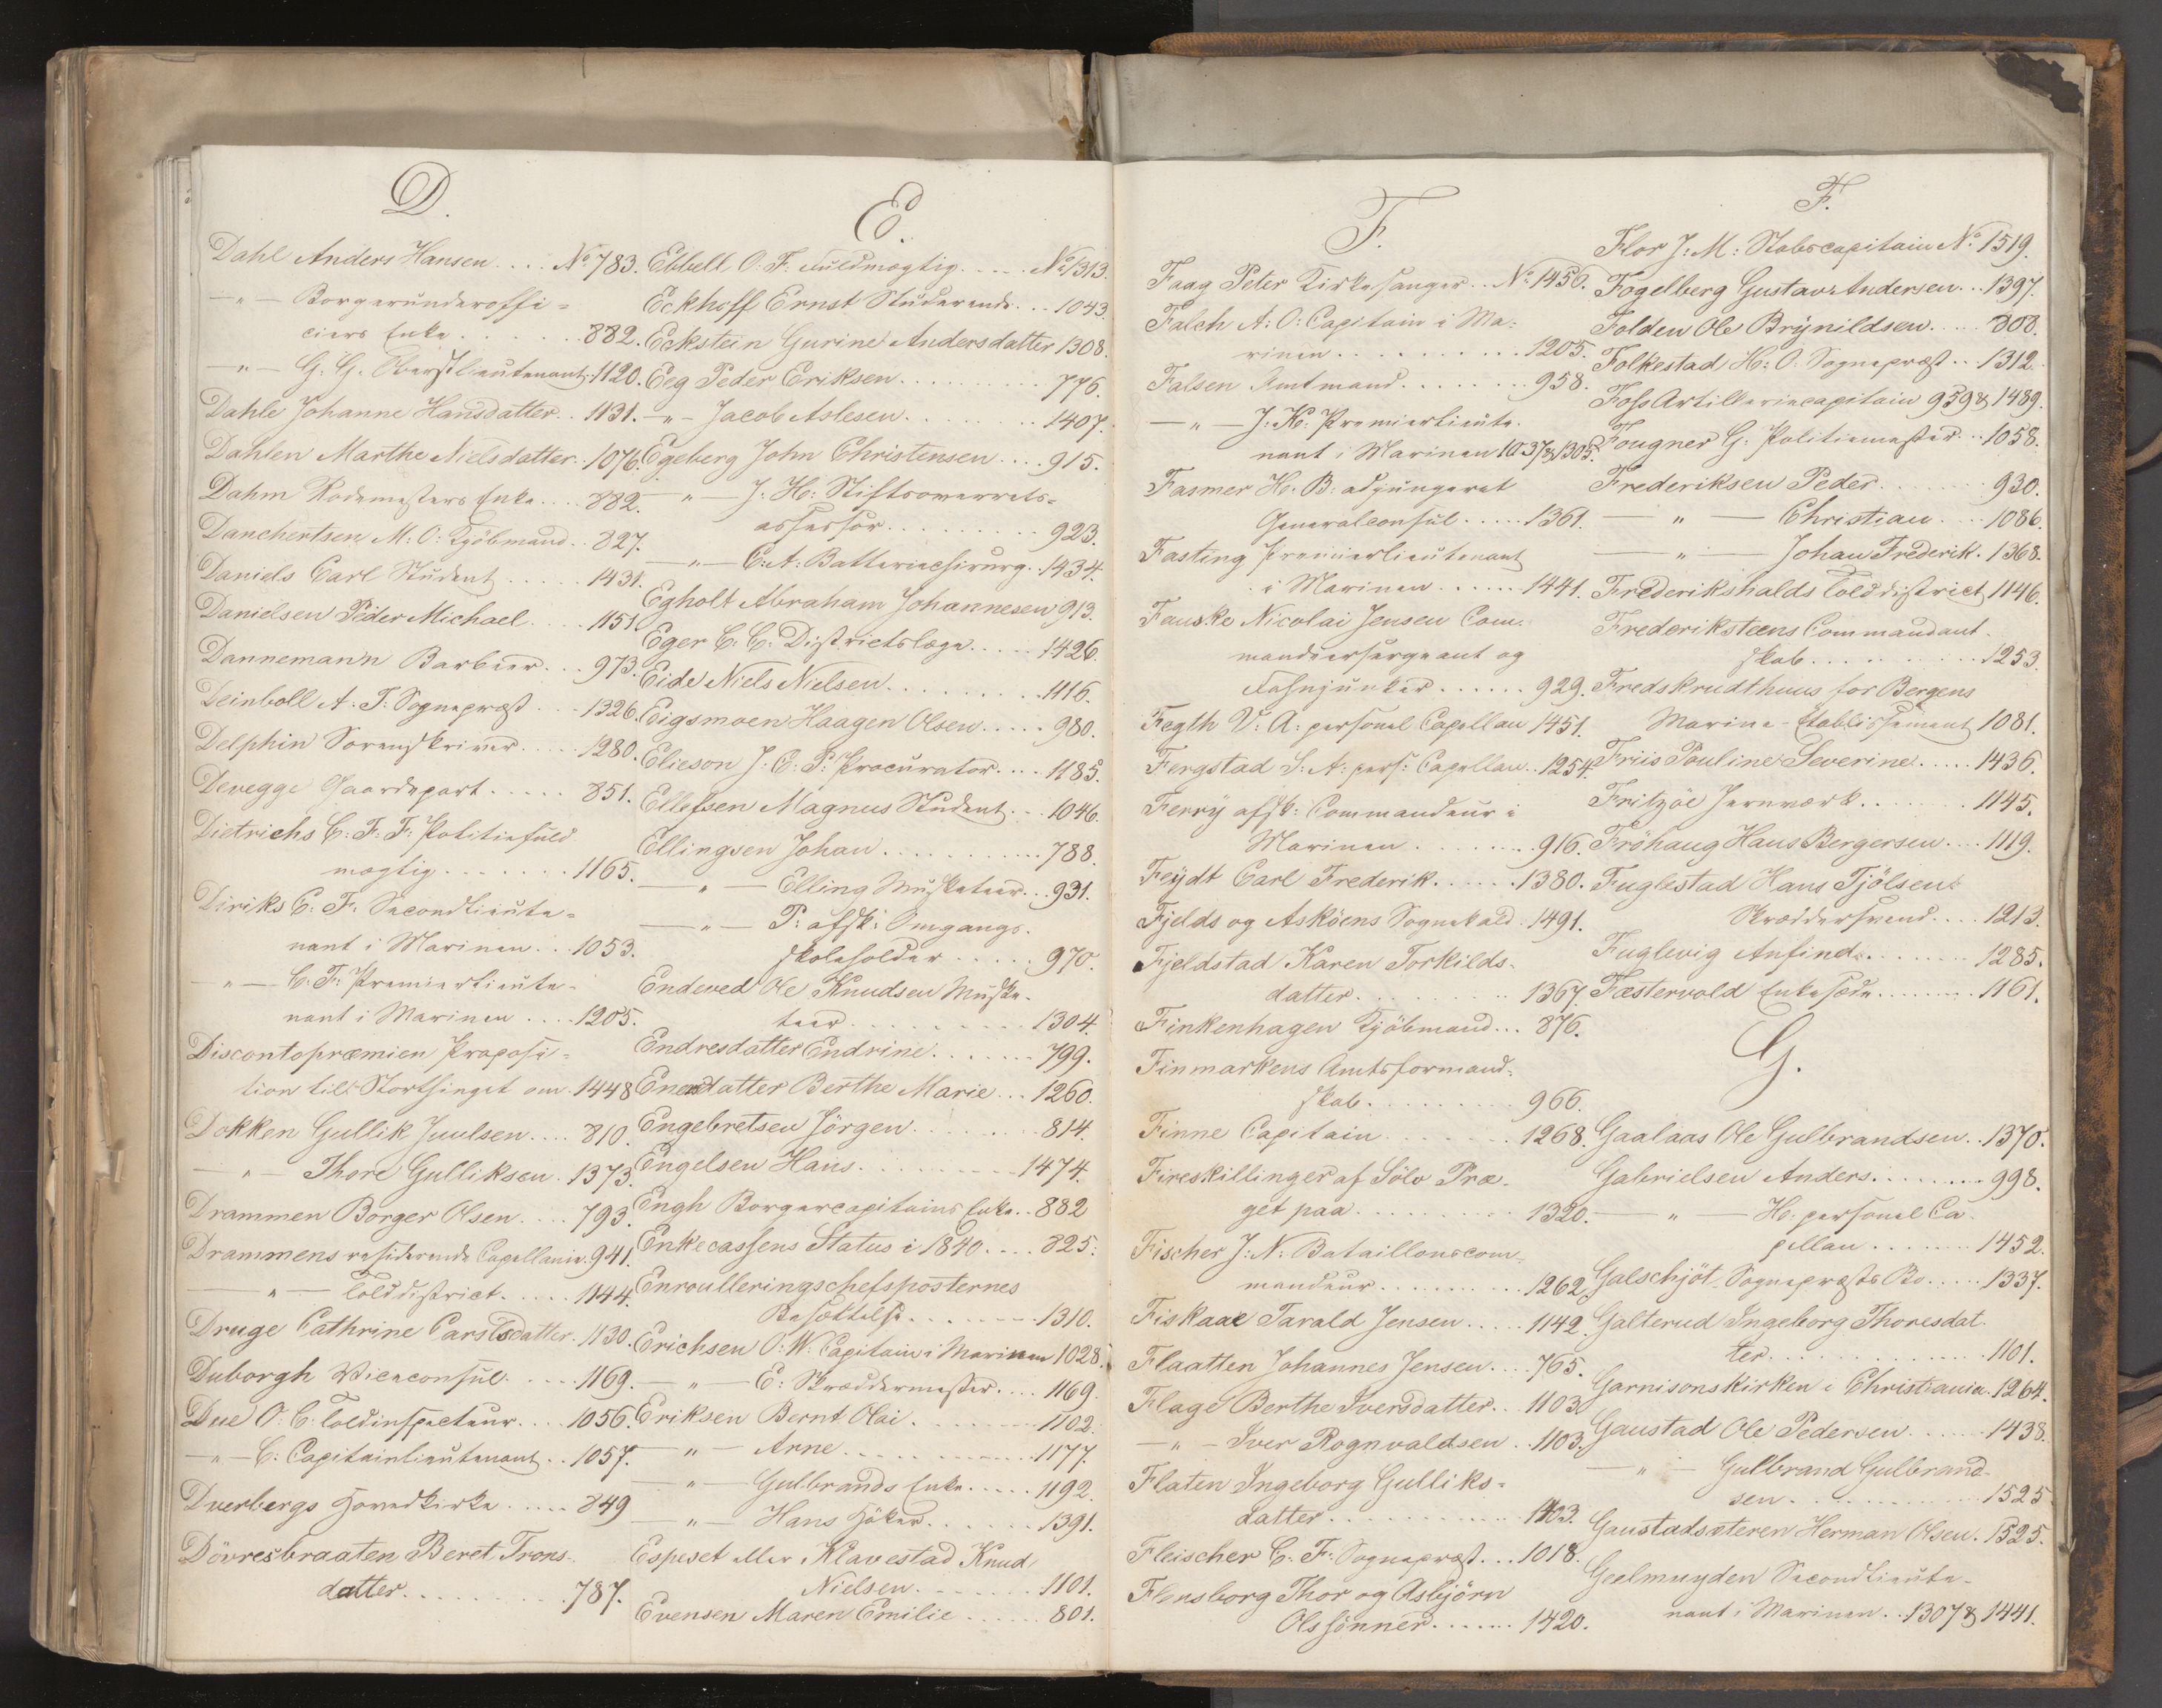 D.
Dahl Anders Hansen .... No 783.
—"— Borgerunderoffi=
ciers Enke ...... 882.
—"— G. G. Oberstlieutenant. 1120.
Dahle Johanne Hansdatter .. 1131.
Dahlen Marthe Nielsdatter .. 1076.
Dahm Rodemesters Enke .... 882.
Danchertsen M. O: Kjöbmand .. 827.
Daniels Carl Student ..... 1431.
Danielsen Peder Michael .... 1151.
Dannemann Barbeer ... 973.
Deinboll A. T. Sognepræst ... 1326.
Delphin Sorenskriver ..... 1280.
Devegge Gaardepart ..... 851.
Dietrichs C: F: F: Politiefuld
mægtig ....... 1165.
Diriks C: F: Secondlieute=
nant i Marinen ... 1053.
—"— C: F: Premierlieute=
nant i Marinen .... 1205.
Discontopræmien Proposi=
tion till Storthinget om . 1448
Dokken Gullik Juulsen .... 810.
—"— Thore Gulliksen . 1373.
Drammen Borger Olsen .... 793.
Drammens residerende Capellanie . 941.
—"— Tolddistrict ..... 1144.
Druge Cathrine Carstsdatter . 1130.
Duborgh Viceconsul ..... 1169.
Due O: C: Toldinspecteur .... 1056.
—"— C: Capitainlieutenant .. 1057.
Dverbergs Hovedkirke ..... 849
Dövresbraaten Beret Trons-
datter ......... 787.
E.
Ebbell O: F: Fuldmægtig ..... No 1313.
Eckhoff Ernst Studerende ... 1043.
Eckstein Gurine Andersdatter 1308.
Eeg Peder Eriksen ......... 776.
—"— Jacob Aslesen ......... 1407.
Egeberg John Christensen .... 915.
—"— J. H: Stiftsoverrets=
assessor ......... 923.
—"— C: A: Batteriechirurg .. 1434.
Egholt Abraham Johannesen 913.
Eger C. C. Districtslæge ..... 1426.
Eide Niels Nielsen ......... 1116.
Eigsmoen Haagen Olsen ..... 980.
Elieson J: C: P: Procurator .... 1185.
Ellefsen Magnus Student ... 1046.
Ellingsen Johan ........... 788.
—"— Elling Musketeer ... 931.
—"— P: afsk: Omgangs-
skoleholder ..... 970.
Endeved Ole Knudsen Muske-
teer ......... 1304.
Endresdatter Endrine ....... 799.
Enersdatter Berthe Marie ... 1260.
Engebretsen Jörgen ........ 814.
Engelsen Hans ......... 1474.
Engh Borgercapitains Enke .. 882
Enkecassens Status i 1840 .... 825.
Enroulleringschefsposternes
Besættelse ........ 1310.
Erichsen O: W: Capitain i Marinen 1028.
—"— E: Skræddermester .... 1169.
Eriksen Bernt Olai ........ 1102.
—"— Arne ........... 1177.
—"— Gulbrands Enke ..... 1192.
—"— Hans Höker ...... 1391.
Espeset eller Klavestad Knud
Nielsen ........ 1101.
Evensen Maren Emilie ...... 801.
F.
Faag Peter Kirkesanger .. No 1450.
Falch A: O: Capitain i Ma:
rinen .......... 1205.
Falsen Amtmand ........ 958.
—"— J: K: Premierlieute-
nant i Marinen 1037 & 1305.
Fasmer H. B: adjungeret
Generalconsul ..... 1361.
Fasting Premierlieutenant
i Marinen ...... 1441.
Fauske Nicolai Jensen Com-
mandeersergeant og
Fahnjunker ...... 929.
Fegth V: A: personel Capellan 1451.
Fergstad S: A: pers: Capellan .. 1254.
Ferry afsk: Commandeur i
Marinen ........ 916.
Feydt Carl Frederik ...... 1380.
Fjelds og Asköens Sognekald . 1491.
Fjeldstad Karen Torkilds-
datter ......... 1367.
Finkenhagen Kjöbmand ... 876.
Finmarkens Amtsformand-
skab ......... 966.
Finne Capitain ........ 1268.
Fireskillinger af Sölv Præ-
get paa ......... 1320.
Fischer J: N: Bataillonscom-
mandeur .......... 1262.
Fiskaae Tarald Jensen ..... 1142.
Flaatten Johannes Jensen .... 765.
Flage Berthe Iversdatter .. 1103.
—"— Iver Rognvaldsen .. 1103.
Flaten Ingeborg Gulliks=
datter ........... 1103.
Fleischer C. F: Sognepræst ... 1018.
Flensborg Thor og Asbjörn
Olssönner ....... 1420.
F.
Flor J: M: Stabscapitain No 1519.
Fogelberg Gustav Andersen ... 1397.
Folden Ole Brynildsen ..... 808.
Folkestad H: O: Sognepræst .. 1312.
Foss Artilleriecapitain 959 & 1489.
Fougner G: Politiemester .. 1058.
Frederiksen Peder ....... 930.
—"— Christian .... 1086.
—"— Johan Frederik . 1368.
Frederikshalds Tolddistrict 1146.
Frederiksteens Commandant-
skab .......... 1253.
Fredskrudthuus for Bergens
Marine-Etablissement 1081.
Friis Pauline Severine ..... 1436.
Fritzöe Jernværk ....... 1145.
Fröhaug Hans Bergersen .... 1119.
Fuglestad Hans Tjölsen
Skræddersvend .... 1213.
Fuglevig Anfind ......... 1285.
Fæstervold Enkesæde ........ 1161.
G.
Gaalaas Ole Gulbrandsen .. 1370.
Gabrielsen Anders ......... 998.
—"— H: personel Ca-
pellan ....... 1452.
Galschjöt Sognepræsts Bo ..... 1337.
Galterud Ingeborg Thoresdat-
ter ............... 1101.
Garnisonskirken i Christiania . 1264.
Gaustad Ole Pedersen ...... 1438.
—"— Gulbrand Gulbrand-
sen ............ 1525
Gaustadsæteren Herman Olsen . 1525.
Geelmuyden Secondlieute-
nant i Marinen .. 1307 & 1441.